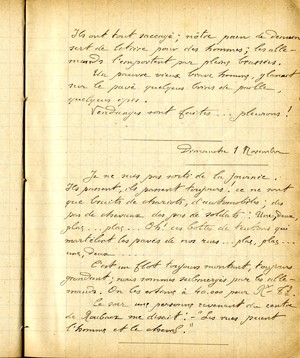 Ils ont tout saccagé ; nôtre pain de demain
sert de litière pour des hommes ; les alle-
mands l'emportent par pleins brassées.
Un pauvre vieux brave homme, glanait
sur le pavé quelques brins de paille,
quelques épis.
Vendanges sont faites ... pleurons !
Dimanche 1 Novembre
Je ne suis pas sorti de la journée.
Ils passent, ils passent toujours ! ce ne sont
que bruits de chariots, d'automobiles ; des
pas de chevaux des pas de soldats : Une, deux,
plas... plas... Oh ! ces bottes de teutons qui
martèlent les pavés de nos rues... plas, plas...
une, deux...
C'est un flot toujours montant, toujours
grondant ; nous sommes submergés par les alle-
mands. On les estime à 40.000 pour
Le soir une personne revenant du centre
de Roubaix me disait : - "Les rues puent
l'homme et le cheval."